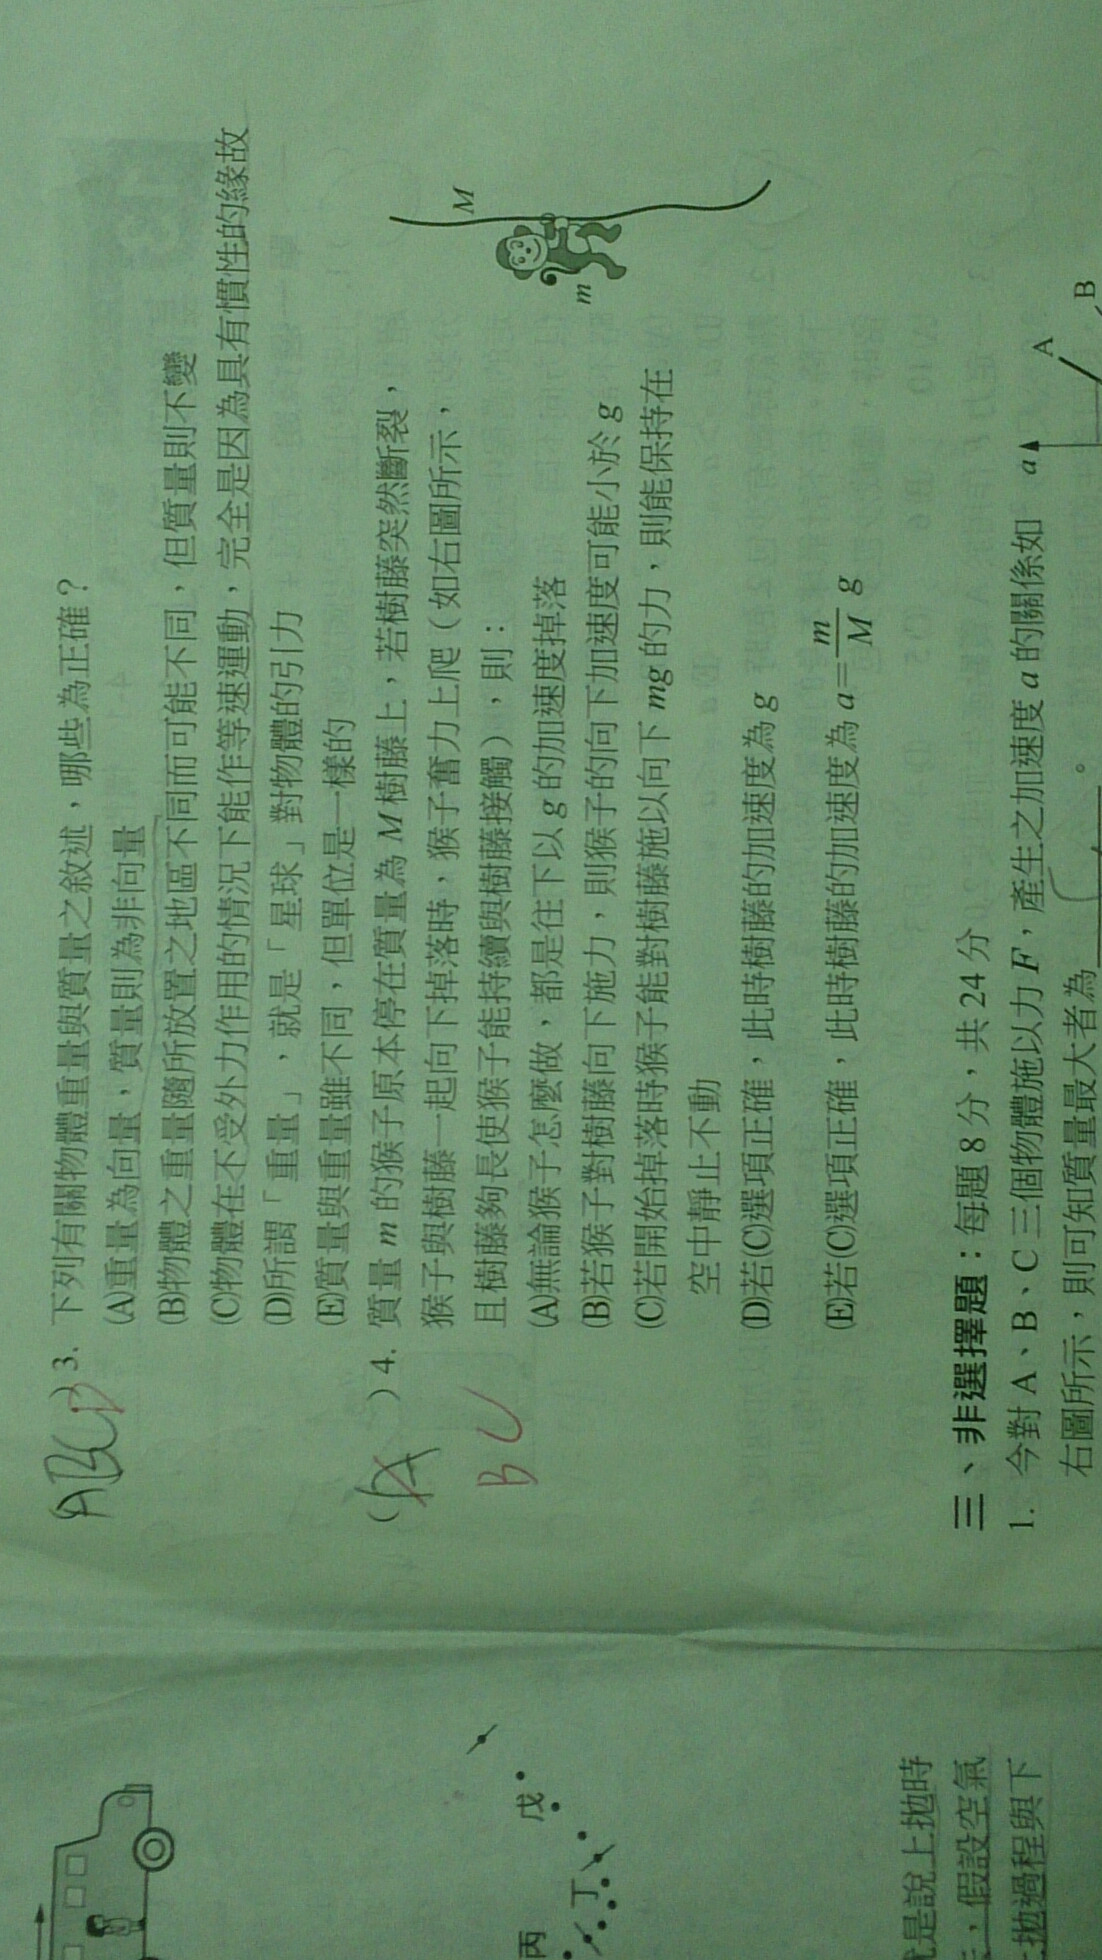 ABCD
( ) 3. 下列有關物體重量與質量之敘述，哪些為正確？
(A)重量為向量，質量則為非向量
(B)物體之重量隨所放置之地區不同而可能不同，但質量則不變
(C)物體在不受外力作用的情況下能作等速運動，完全是因為具有慣性的緣故
(D)所謂「重量」，就是「星球」對物體的引力
(E)質量與重量雖不同，但單位是一樣的
A
BC
( ) 4. 質量 m 的猴子原本停在質量為 M 樹藤上，若樹藤突然斷裂，
猴子與樹藤一起向下掉落時，猴子奮力上爬（如右圖所示，
且樹藤夠長使猴子能持續與樹藤接觸），則：
(A)無論猴子怎麼做，都是往下以 g 的加速度掉落
(B)若猴子對樹藤向下施力，則猴子的向下加速度可能小於 g
(C)若開始掉落時猴子能對樹藤施以向下 mg 的力，則能保持在
空中靜止不動
(D)若(C)選項正確，此時樹藤的加速度為 g
(E)若(C)選項正確，此時樹藤的加速度為 a = m/M g
M
m
三、非選擇題：每題 8 分，共 24 分
1. 今對 A、B、C 三個物體施以力 F，產生之加速度 a 的關係如
右圖所示，則可知質量最大者為 。
a
A
B
丙
丁
戊
是說上拋時
，假設空氣
拋過程與下